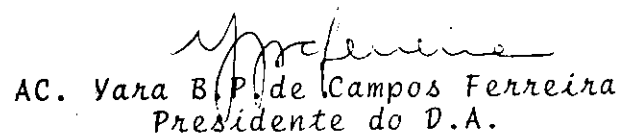 AC. Yara B.P. de Campos Ferreira
Presidente do D.A.